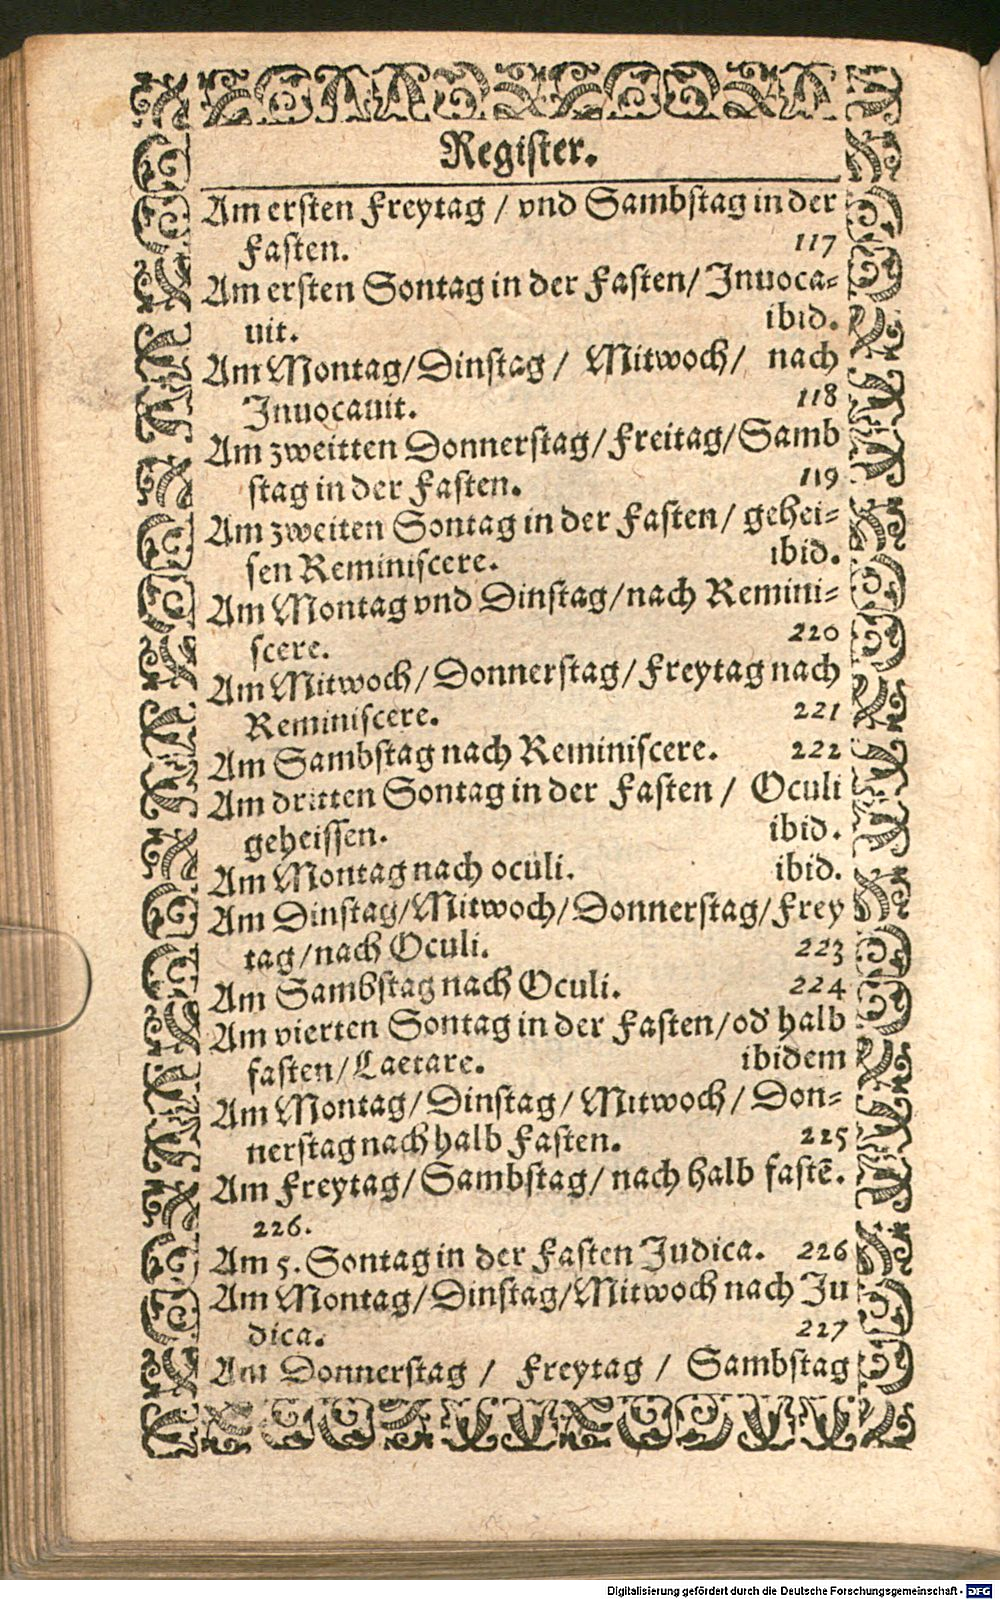 Register.
Am ersten Freytag / vnd Sambstag in der
Fasten. 117
Am ersten Sontag in der Fasten/ Inuoca⸗
uit. ibid.
Am Montag/Dinstag / Mitwoch/ nach
Inuocauit. 118
Am zweitten Donnerstag/Freitag/Samb
stag in der Fasten. 119
Am zweiten Sontag in der Fasten/ gehei⸗
sen Reminiscere. ibid.
Am Montag vnd Dinstag/nach Remini⸗
scere. 220
Am Mitwoch/Donnerstag/Freytag nach
Reminiscere. 221
Am Sambstag nach Reminiscere. 222
Am dritten Sontag in der Fasten / Oculi
geheissen. ibid.
Am Montag nach oculi. ibid.
Am Dinstag/Mitwoch/Donnerstag/Frey
tag/nach Oculi. 223
Am Sambstag nach Oculi. 224
Am vierten Sontag in der Fasten/od' halb
fasten/Laetare. ibidem
Am Montag/Dinstag/Mitwoch/ Don⸗
nerstag nach halb Fasten. 225
Am Freytag/Sambstag/nach halb fastē.
226.
Am 5. Sontag in der Fasten Judica. 226
Am Montag/Dinstag/Mitwoch nach Ju
dica. 227
Am Donnerstag / Freytag / Sambstag
Digitalisierung gefördert durch die Deutsche Forschungsgemeinschaft - DFG